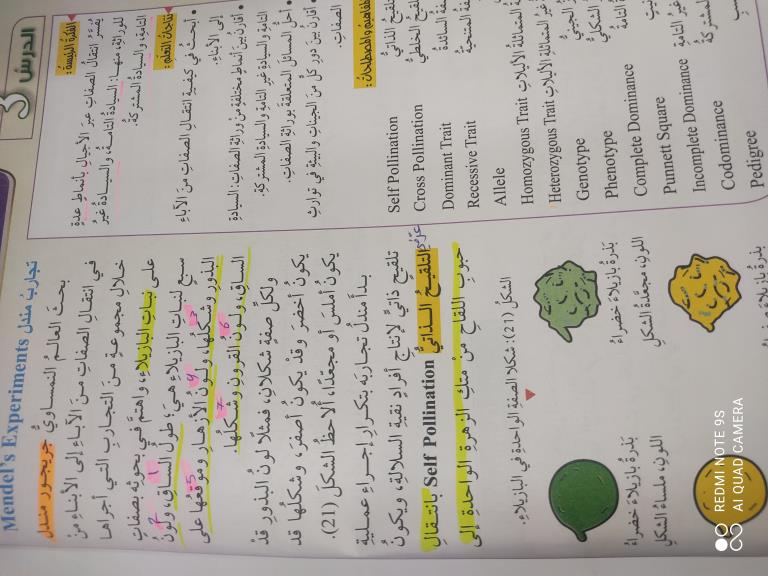 الدرس 3
الفكرة الرئيسة:
يفسر انتقال الصفات عبر الأجيال بأنماط عدة
للوراثة، منها: السيادة التامة، والسيادة غير
التامة، والسيادة المشتركة.
نتاجات التعلم:
• أبحث في كيفية انتقال الصفات من الآباء
إلى الأبناء.
• أقارن بين أنماط مختلفة من وراثة الصفات: السيادة
التامة والسيادة غير التامة والسيادة المشتركة.
• أحل المسائل المتعلقة بوراثة الصفات.
• أقارن بين دور كل من الجينات والبيئة في توارث
الصفات.
المفاهيم والمصطلحات:
Self Pollination
Cross Pollination
Dominant Trait
Recessive Trait
Allele
Homozygous Trait
Heterozygous Trait
Genotype
Phenotype
Complete Dominance
Punnett Square
Incomplete Dominance
Codominance
Pedigree
تجارب مندل Mendel's Experiments
بحث العالم النمساوي جريجور مندل
في انتقال الصفات من الآباء إلى الأبناء من
خلال مجموعة من التجارب التي أجراها
على نبات البازيلاء، واهتم في بحوثه بصفات
سبع لنبات البازيلاء هي: طول الساق، ولون
البذور وشكلها، ولون الأزهار وموقعها على
الساق، ولون القرون وشكلها.
ولكل صفة شكلان، فمثلا لون البذور قد
يكون أخضر وقد يكون أصفر، وشكلها قد
يكون أملس أو مجعدا، ألاحظ الشكل (21).
بدأ مندل تجاربه بتكرار إجراء عملية
تلقيح ذاتي لإنتاج أفراد نقية السلالة، ويكون
التلقيح الذاتي Self Pollination بانتقال
حبوب اللقاح من متك الزهرة الواحدة إلى
الشكل (21): شكلا الصفة الواحدة في البازيلاء.
بذرة بازيلاء خضراء
اللون، مجعدة الشكل
بذرة بازيلاء خضراء
اللون، ملساء الشكل
REDMI NOTE 9S
AI QUAD CAMERA